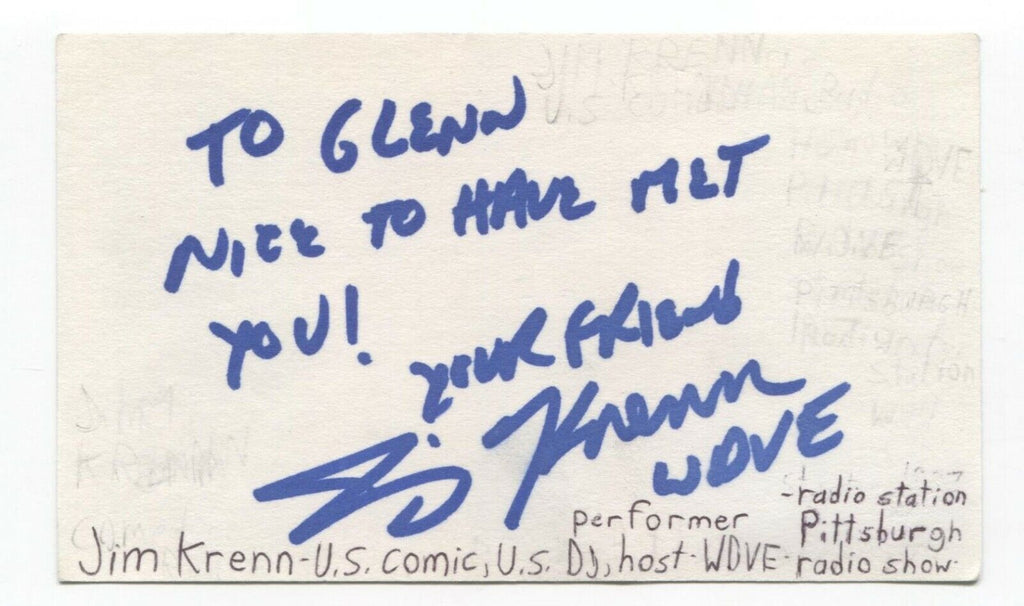 TO GLENN
NICE TO HAVE MET
YOU!
YOUR FRIEND
Jim Krenn
WDVE
-radio station
performer Pittsburgh
Jim Krenn-U.S. comic, U.S. DJ, host-WDVE-radio show.